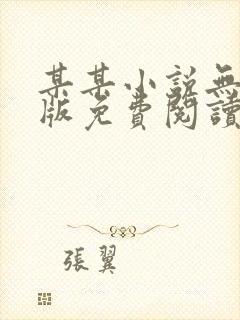 某某小説無
版免費閱讀
張翼